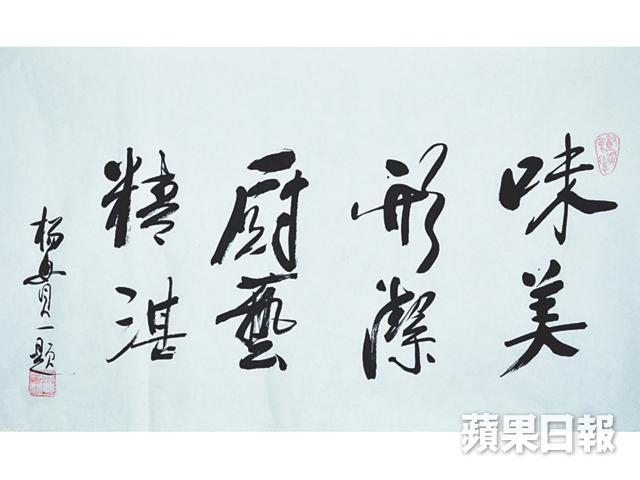 味美
形潔
廚藝
精湛
楊貫一題
蘋果日報